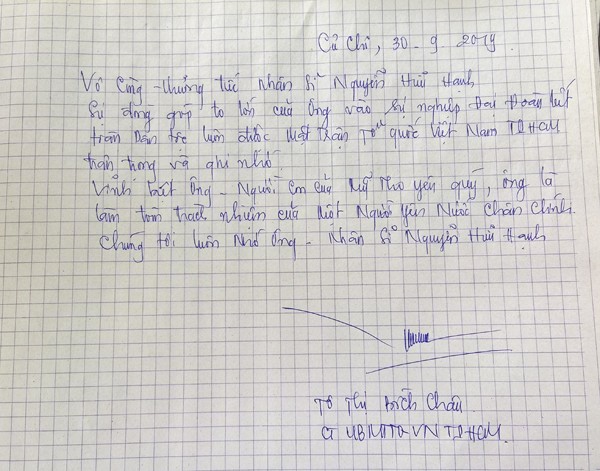 Củ Chi, 30-9-2019
Vô Cùng thương tiếc nhân Sĩ Nguyễn Hữu Hạnh
Sự đóng góp to lớn của Ông vào sự nghiệp Đại Đoàn kết
toàn Dân tộc luôn được Mặt trận Tổ quốc Việt Nam TPHCM
trân trọng và ghi nhớ.
Vĩnh biệt Ông - Người con của Mỹ Tho yêu quý, ông là
làm tròn trách nhiệm của Một Người yêu Nước Chân Chính.
Chúng tôi luôn Nhớ Ông - Nhân Sĩ Nguyễn Hữu Hạnh
Tô Thị Bích Châu
CT UBMTTQ VN TPHCM.